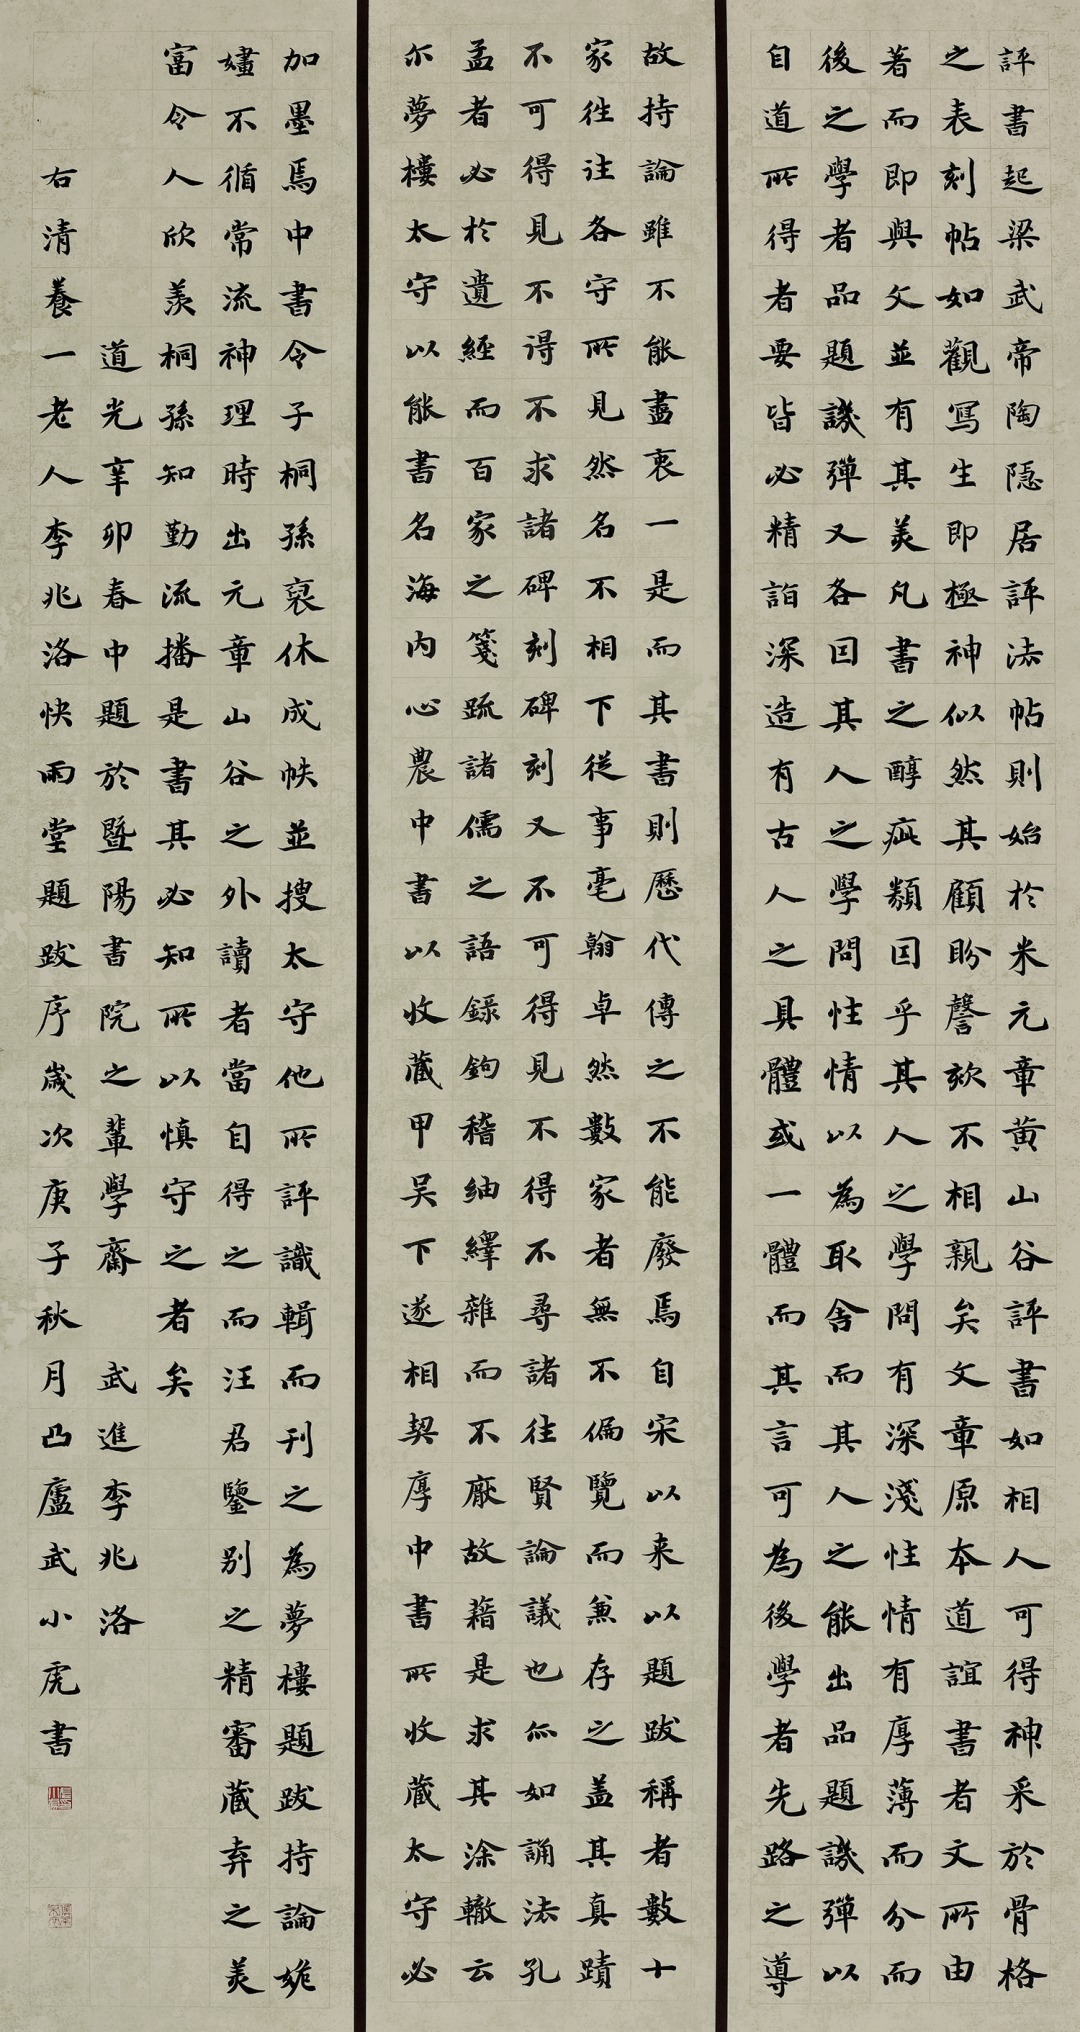 評書起梁武帝陶隱居評法帖則始於米元章黃山谷評書如相人可得神采於骨格
之表刻帖如觀寫生即極神似然其顧盼謦欬不相親矣文章原本道誼書者文所由
著而即與文並有其美凡書之醇疵類因乎其人之學問有深淺性情有厚薄而分而
後之學者品題譏彈又各因其人之學問性情以為取舍而其人之能出品題譏彈以
自道所得者要皆必精詣深造有古人之具體或一體而其言可為後學者先路之導
故持論雖不能盡衷一是而其書則歷代傳之不能廢焉自宋以來以題跋稱者數十
家往往各守所見然名不相下從事毫翰卓然數家者無不偏覽而兼存之蓋其真蹟
不可得見不得不求諸碑刻碑刻又不可得見不得不尋諸往賢論議也亦如誦法孔
孟者必於遺經而百家之箋疏諸儒之語錄鉤稽紬繹雜而不厭故藉是求其涂轍云
尔夢樓太守以能書名海內心農中書以收藏甲吳下遂相契厚中書所收藏太守必
加墨焉中書令子桐孫裒休成帙並搜太守他所評識輯而刊之為夢樓題跋持論姽
嫿不循常流神理時出元章山谷之外讀者當自得之而汪君鑒別之精審藏弆之美
富令人欣羨桐孫知勤流播是書其必知所以慎守之者矣
道光辛卯春中題於暨陽書院之輩學齋　武進李兆洛
右清養一老人李兆洛快雨堂題跋序歲次庚子秋月凸廬武小虎書